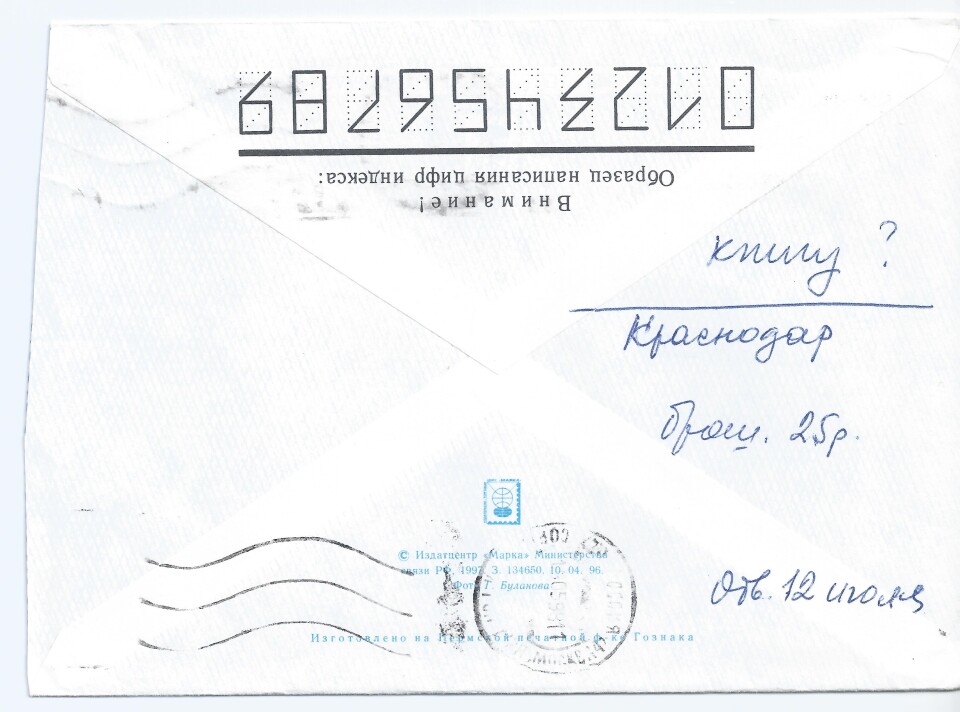 0123456789
Образец написания цифр индекса:
Внимание!
книгу ?
Краснодар
брош. 25р.
© Издатцентр «Марка» Министерства
связи РФ, 1997. З. 134650. 10. 04. 96.
Фото Т. Буланова
Отв. 12 июля
Изготовлено на Пермской печатной ф-ке Гознака